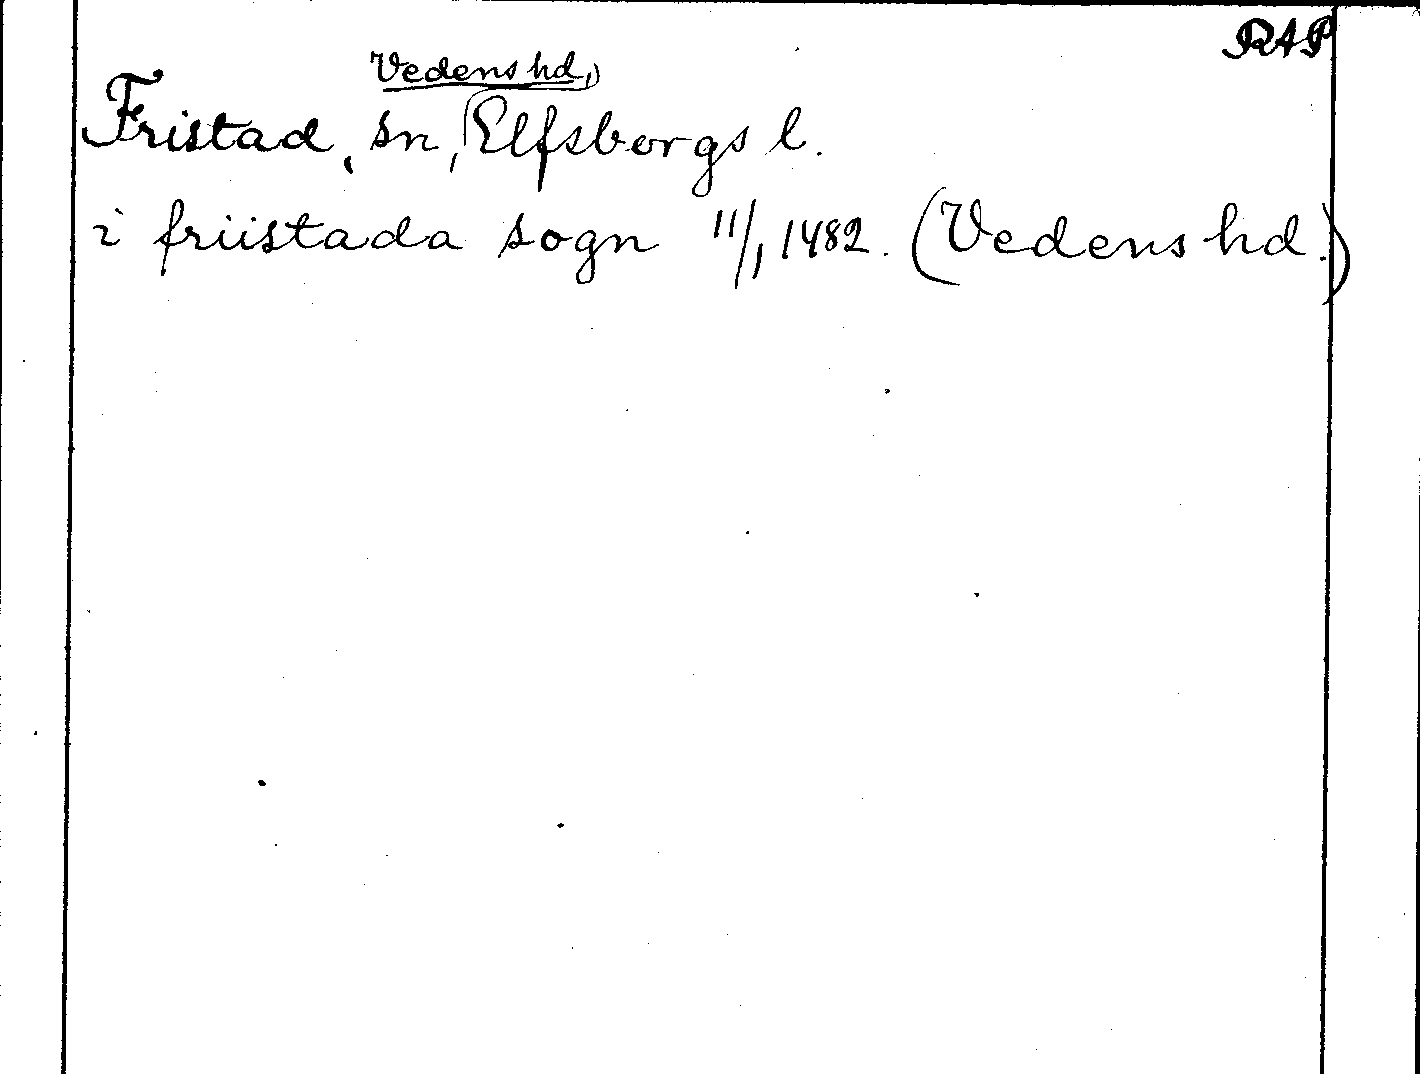 RAP
Vedens hd,
Fristad, sn, Elfsborgs l.
i friistada sogn 11/1 1482. (Vedens hd.)